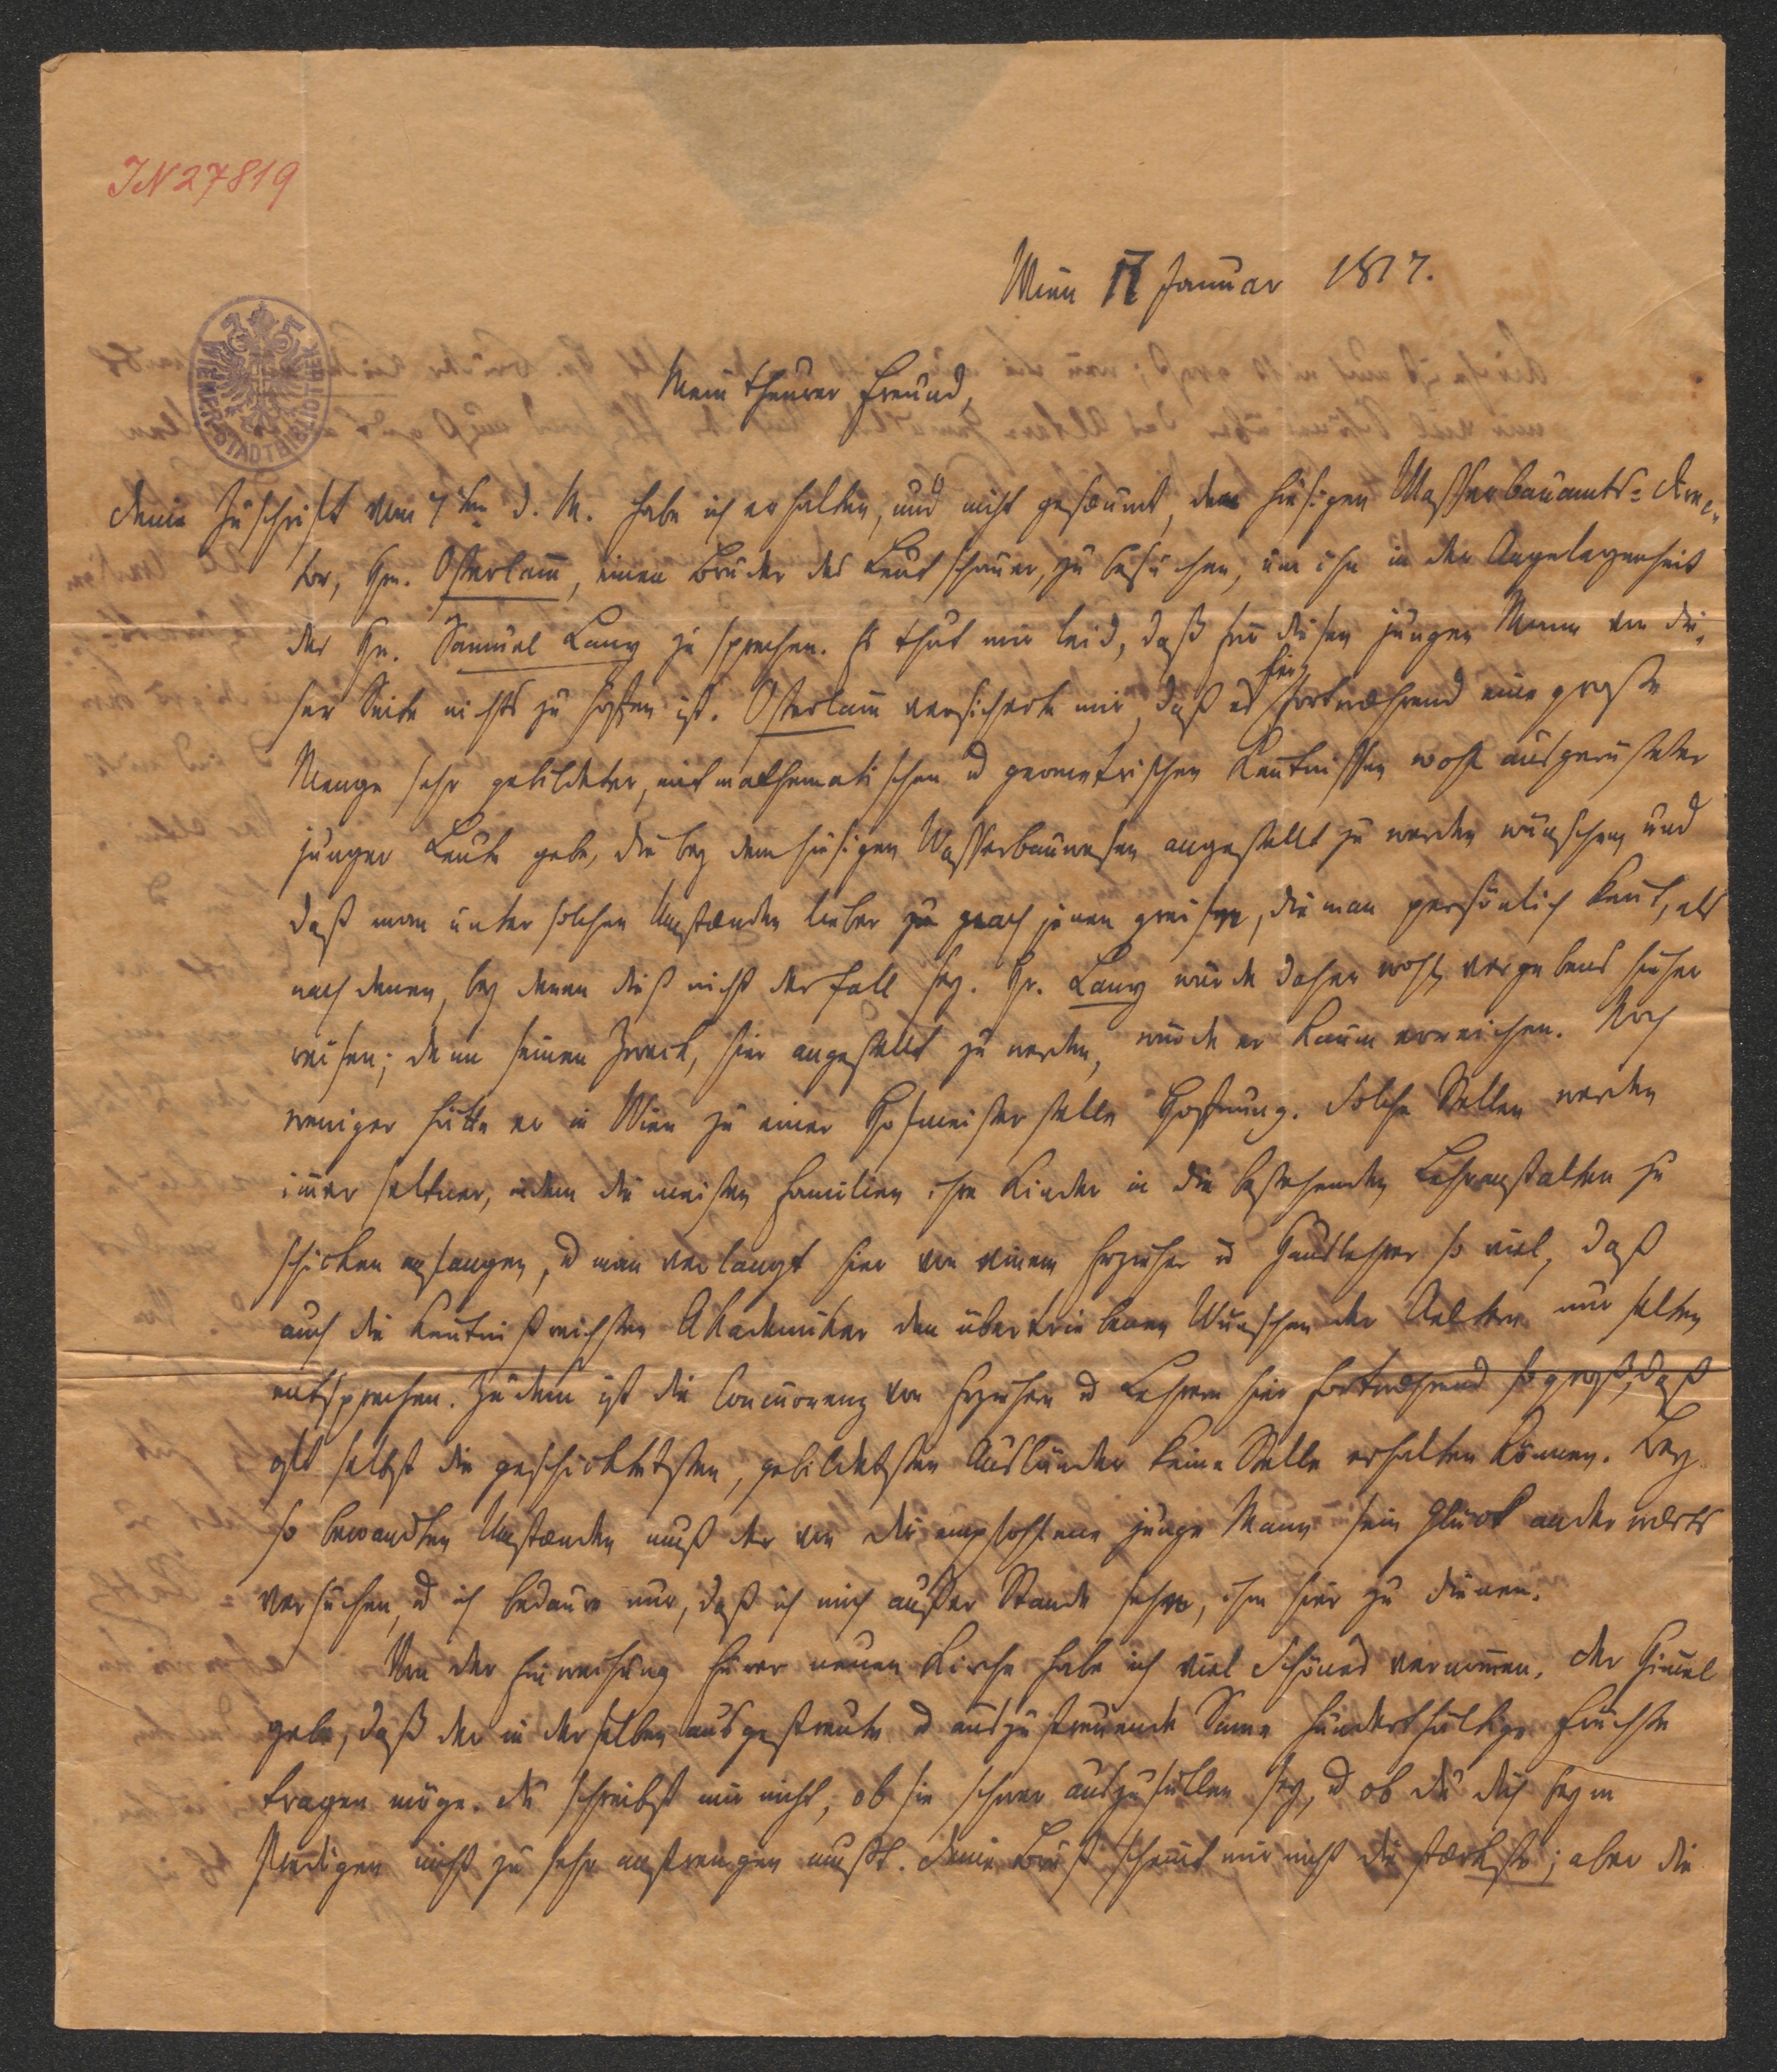 IN 27819
Wien 17 Januar 1817.
WIENER STADTBIBLIOTHEK
Mein theurer Freund,
Deine Zuschrift vom 7ten d. M. habe ich erhalten, und nicht gesäumt, den hiesigen Wasserbauamts-Direc-
tor, Hn. Osterlam̄, einen Bruder des Leutschauer, zu besuchen, um ihn in der Angelegenheit
des Hn. Samuel Lany zu sprechen. Es thut mir leid, daß für diesen jungen Mann von die-
ser Seite nichts zu hoffen ist. Osterlam̄ versicherte mir, daß es hier fortwährend eine große
Menge sehr gebildeter, mit mathematischen u geometrischen Kentnissen wohl ausgerüsteter
junger Leute gebe, die bey dem hiesigen Wasserbauwesen angestellt zu werden wünschen und
daß man unter solchen Umständen lieber nach jenen greife, die man persönlich kent, als
nach denen, bey denen dieß nicht der Fall sey. Hr. Lany würde daher wohl vergebens hieher
reisen; denn seinen Zweck, hier angestellt zu werden, würde er kaum erreichen. Noch
weniger hätte er in Wien zu einer Hofmeisterstelle Hoffnung. Solche Stellen werden
im̄er seltner, indem die meisten Familien ihre Kinder in die bestehenden Lehranstalten zu
schicken anfangen, u man verlangt hier von einem Erzieher u Hauslehrer so viel, daß
auch die kentnißreichsten Akademiker den übertriebenen Wünschen der Aeltern nur selten
entsprechen. Zudem ist die Concurrenz von Erziehern u Lehrern hier fortwährend so groß, daß
oft selbst die geschicktesten, gebildetsten Ausländer keine Stelle erhalten können. Bey
so bewandten Umständen muß der von dir empfohlene junge Mann sein Glück anderwärts
versuchen, u ich bedaure nur, daß ich mich außer Stande sehe, ihm hier zu dienen.
Von der Einweihung Eurer neuen Kirche habe ich viel Schönes vernom̄en. Der Him̄el
gebe, daß der in derselben ausgestreute u auszustreuende Same hundertfältige Früchte
tragen möge. Du schreibst mir nicht, ob sie schwer auszufüllen sey, u ob du dich beym
Predigen nicht zu sehr anstrengen mußt. Deine Brust scheint mir nicht die stärkste; aber die